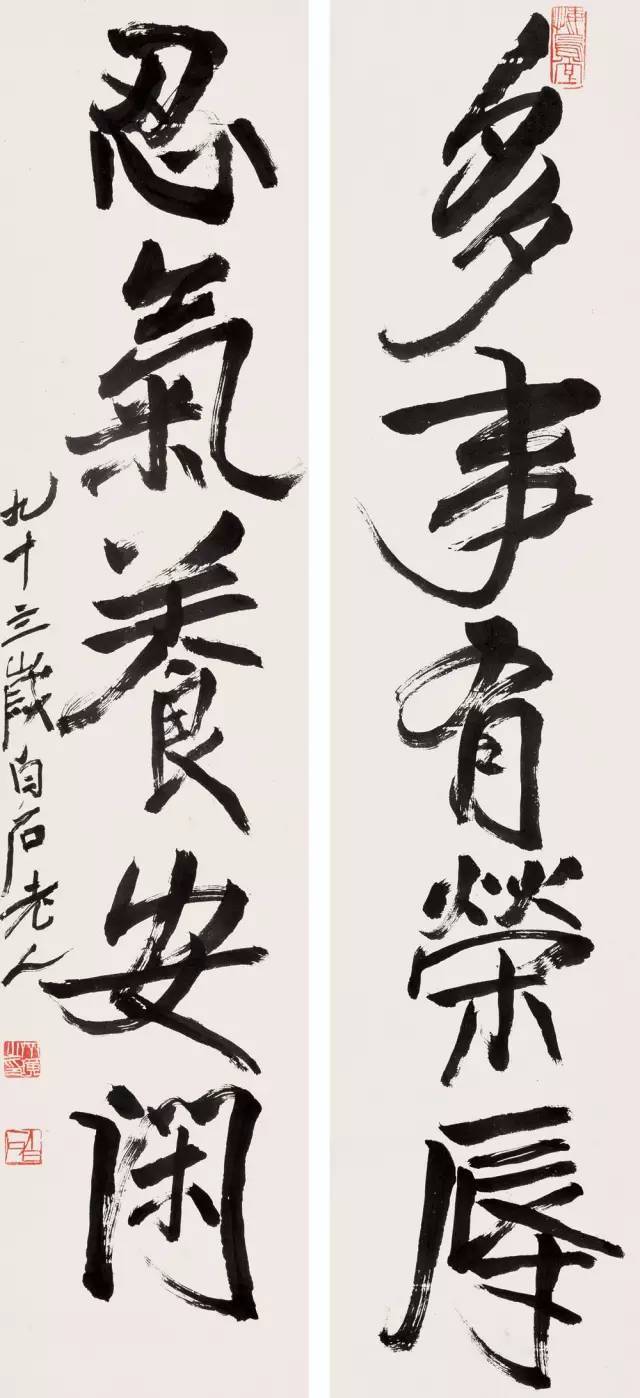 多事有榮辱
忍氣養安閑
九十三歲白石老人
白石